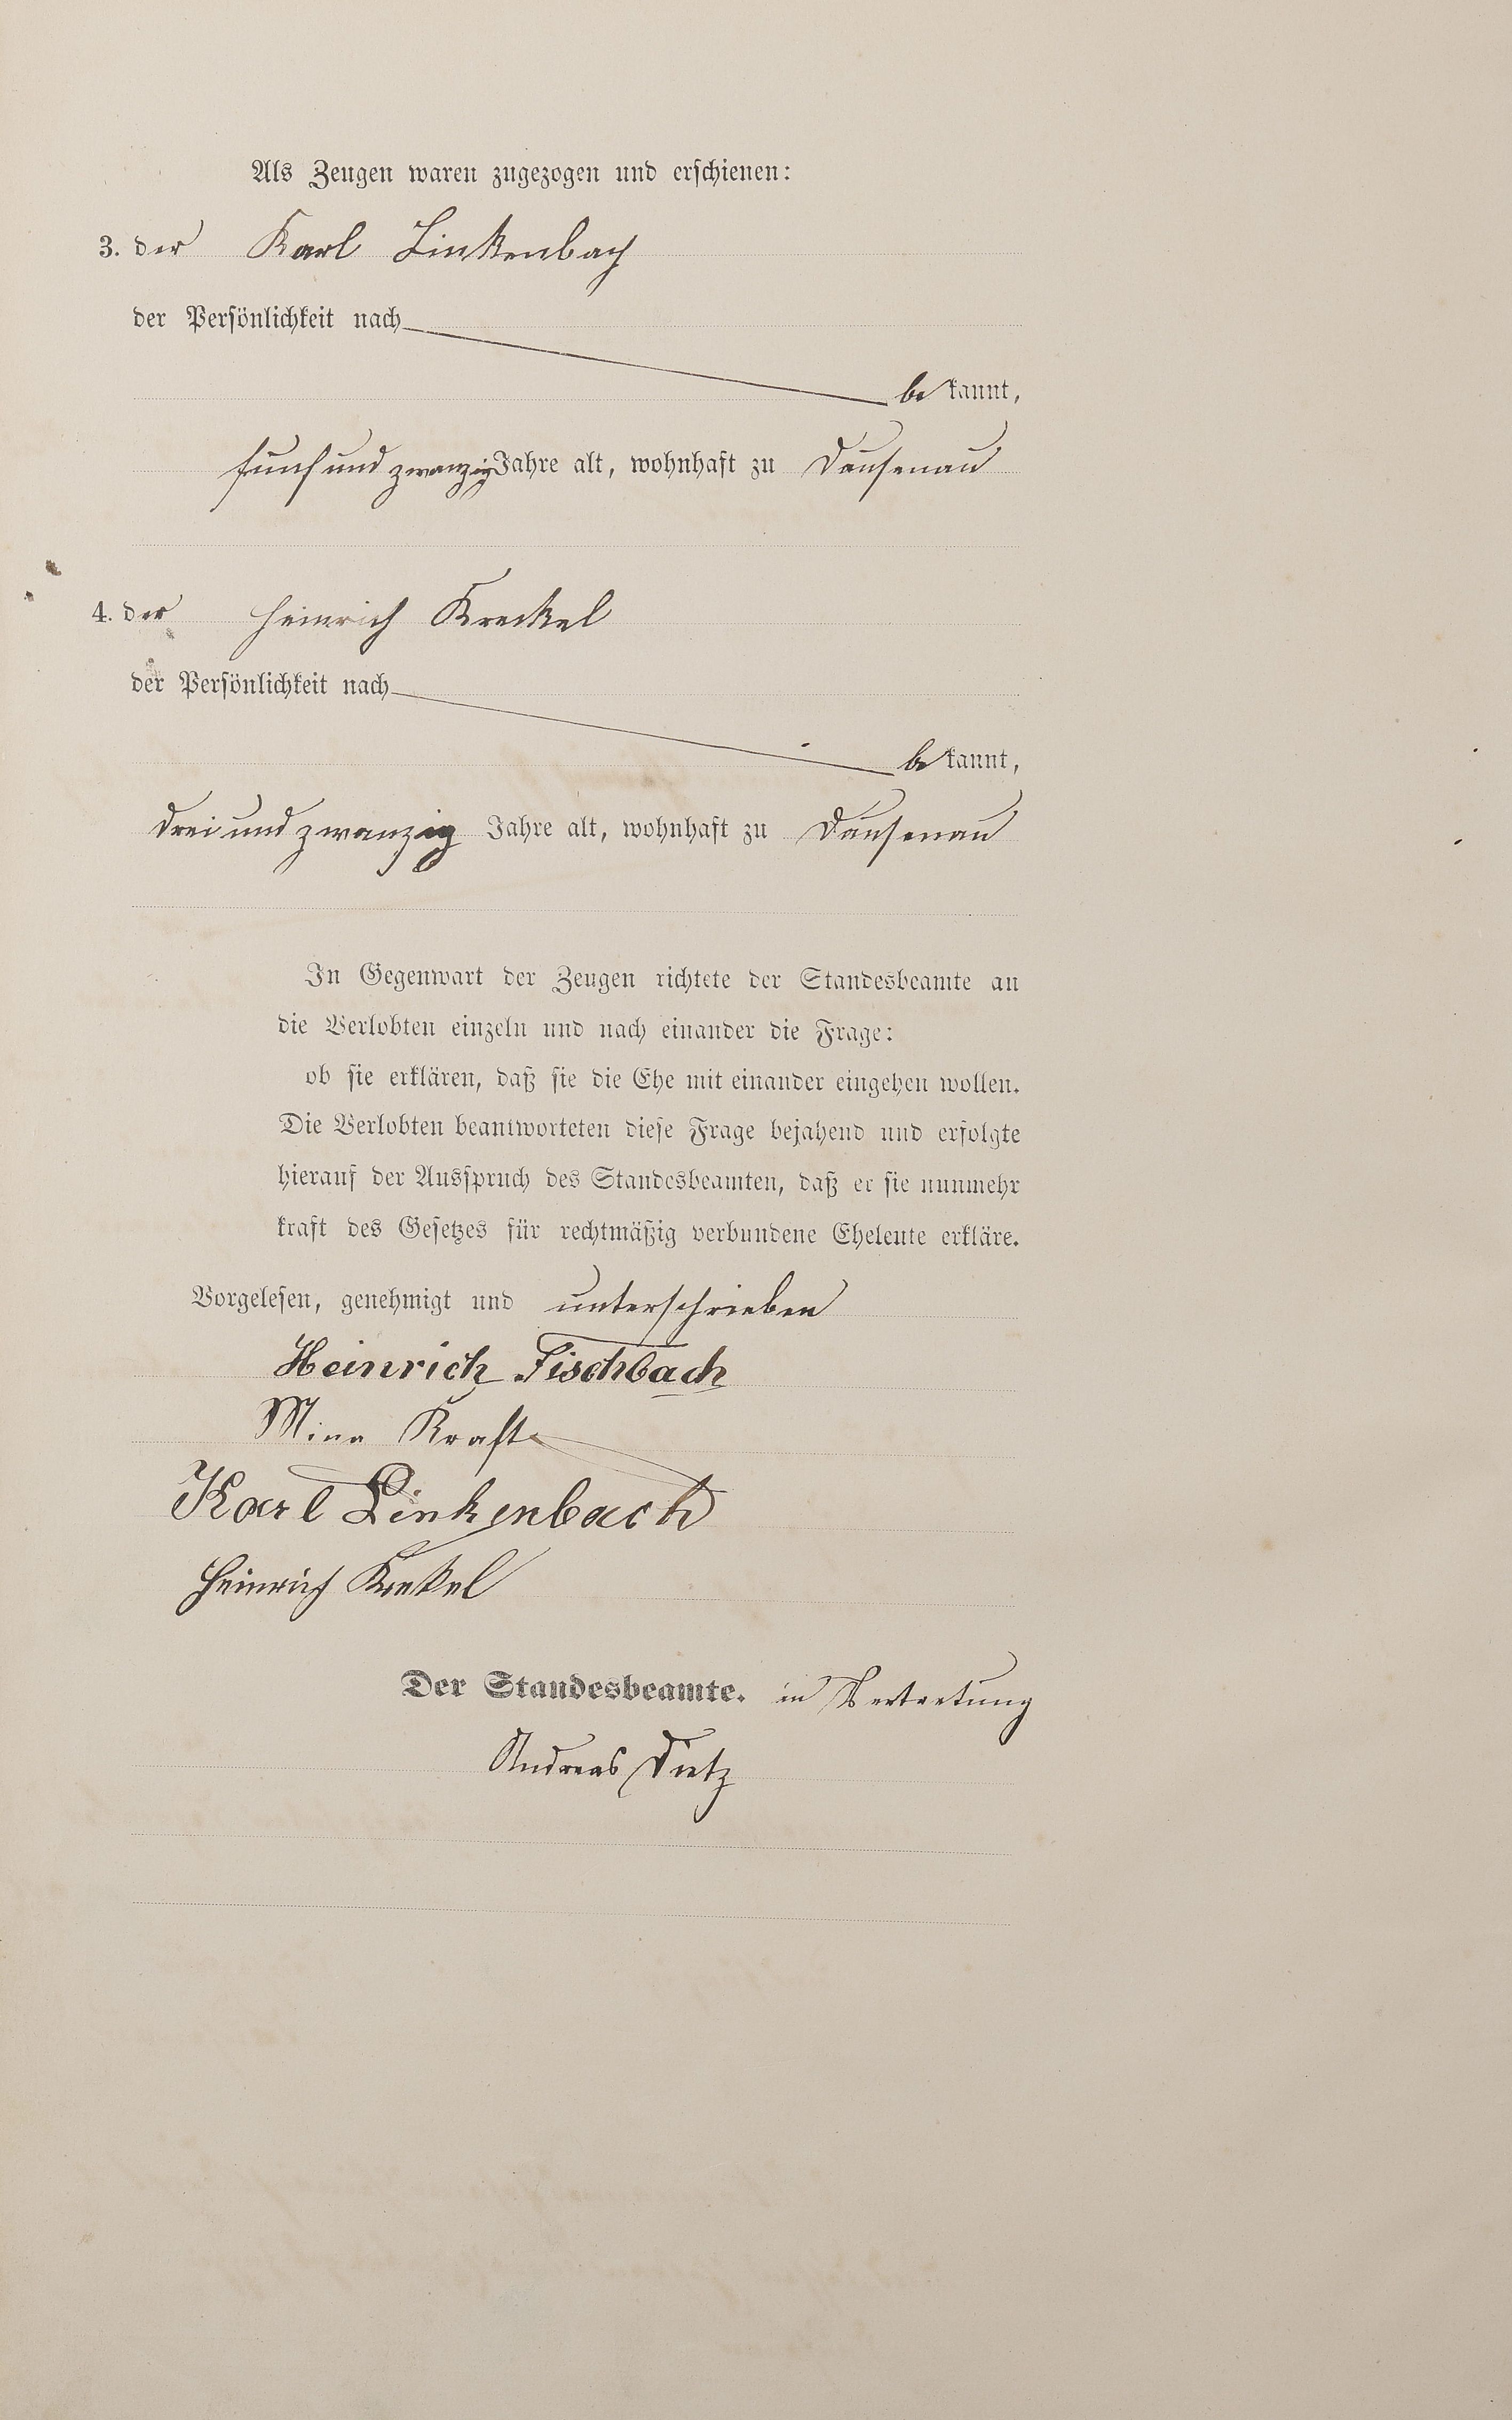 Als Zeugen waren zugezogen und erschienen:
3. der Karl Linkenbach
der Persönlichkeit nach
bekannt,
fünf und zwanzig Jahre alt, wohnhaft zu Dausenau
4. der Heinrich Kreckel
der Persönlichkeit nach
bekannt,
drei und zwanzig Jahre alt, wohnhaft zu Dausenau
In Gegenwart der Zeugen richtete der Standesbeamte an
die Verlobten einzeln und nach einander die Frage:
ob sie erklären, daß sie die Ehe mit einander eingehen wollen.
Die Verlobten beantworteten diese Frage bejahend und erfolgte
hierauf der Ausspruch des Standesbeamten, daß er sie nunmehr
kraft des Gesetzes für rechtmäßig verbundene Eheleute erkläre.
Vorgelesen, genehmigt und unterschrieben
Heinrich Fischbach
Mina Kraft
Karl Linkenbach
Heinrich Krekel
Der Standesbeamte. in Vertretung
Andreas Dietz